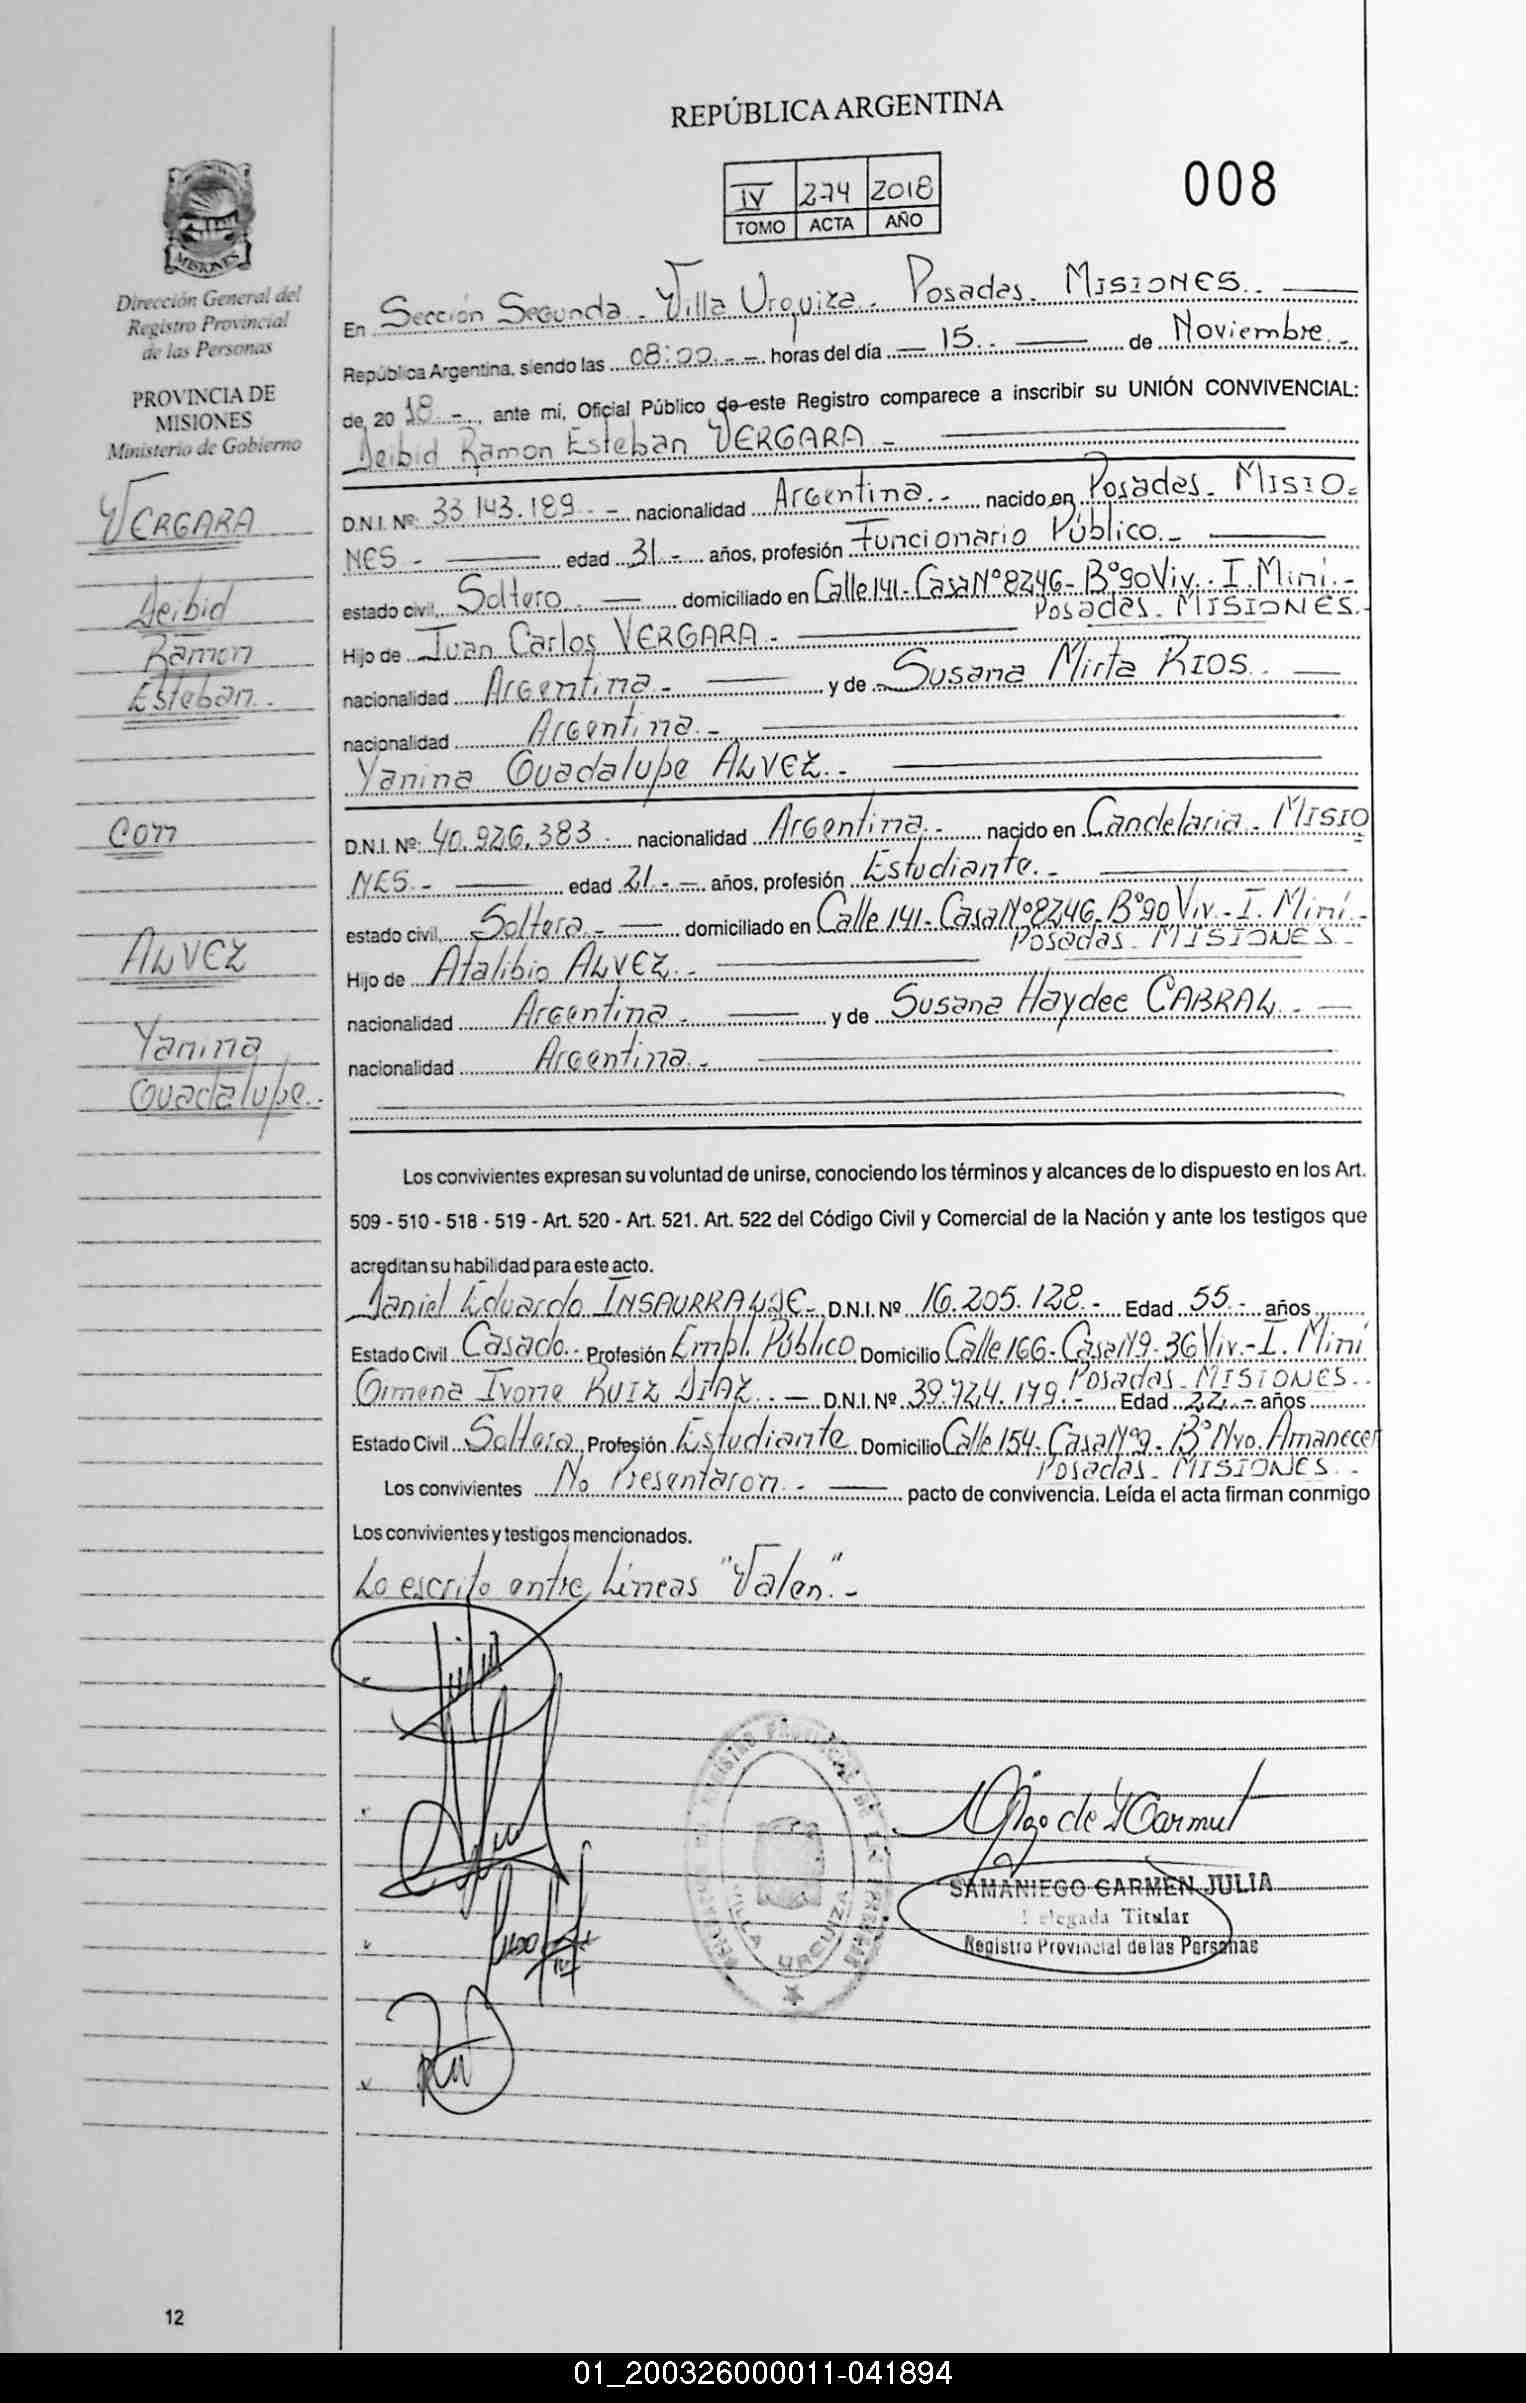 REPÚBLICA ARGENTINA
008
IV 274 2018
TOMO ACTA AÑO
MISIONES
Dirección General del
Registro Provincial
de las Personas
PROVINCIA DE
MISIONES
Ministerio de Gobierno
VERGARA
Deibid
Ramon
Esteban.-
Con
ALVEZ
Yanina
Guadalupe.-
En Sección Segunda - Villa Urquiza - Posadas - MISIONES.-
República Argentina, siendo las 08:00.- - horas del día 15.- de Noviembre.-
de, 20 18.- , ante mi, Oficial Público de este Registro comparece a inscribir su UNIÓN CONVIVENCIAL:
Deibid Ramon Esteban VERGARA.-
D.N.I. Nº: 33.143.189.- nacionalidad Argentina.- nacido en Posadas - MISIO=
NES.- edad 31.- años, profesión Funcionario Público.-
estado civil Soltero.- domiciliado en Calle 141 - Casa Nº 8246 - Bº 90 Viv.- I. Miní.-
Posadas - MISIONES.-
Hijo de Juan Carlos VERGARA.-
nacionalidad Argentina.- y de Susana Mirta RIOS.-
nacionalidad Argentina.-
Yanina Guadalupe ALVEZ.-
D.N.I. Nº: 40.926.383.- nacionalidad Argentina.- nacido en Candelaria - MISIO
NES.- edad 21.- - años, profesión Estudiante.-
estado civil Soltera.- domiciliado en Calle 141 - Casa Nº 8246 - Bº 90 Viv.- I. Miní.-
Posadas - MISIONES.-
Hijo de Atalibio ALVEZ.-
nacionalidad Argentina.- y de Susana Haydee CABRAL.-
nacionalidad Argentina.-
Los convivientes expresan su voluntad de unirse, conociendo los términos y alcances de lo dispuesto en los Art.
509 - 510 - 518 - 519 - Art. 520 - Art. 521. Art. 522 del Código Civil y Comercial de la Nación y ante los testigos que
acreditan su habilidad para este acto.
Daniel Eduardo INSAURRALDE.- D.N.I. Nº 16.205.128.- Edad 55.- años
Estado Civil Casado.- Profesión Empl. Público Domicilio Calle 166 - Casa Nº 9 - 36 Viv.- I. Miní
Posadas - MISIONES.-
Gimena Ivone RUIZ DIAZ.- D.N.I. Nº 39.724.179.- Edad 22.- años
Estado Civil Soltera Profesión Estudiante Domicilio Calle 154 - Casa Nº 9 - Bº Nvo. Amanecer
Posadas - MISIONES.-
Los convivientes No Presentaron.- pacto de convivencia. Leída el acta firman conmigo
Los convivientes y testigos mencionados.
Lo escrito entre Líneas "Valen".-
REGISTRO PROVINCIAL DE LAS PERSONAS
VILLA URQUIZA
SAMANIEGO CARMEN JULIA
Delegada Titular
Registro Provincial de las Personas
12
01_200326000011-041894